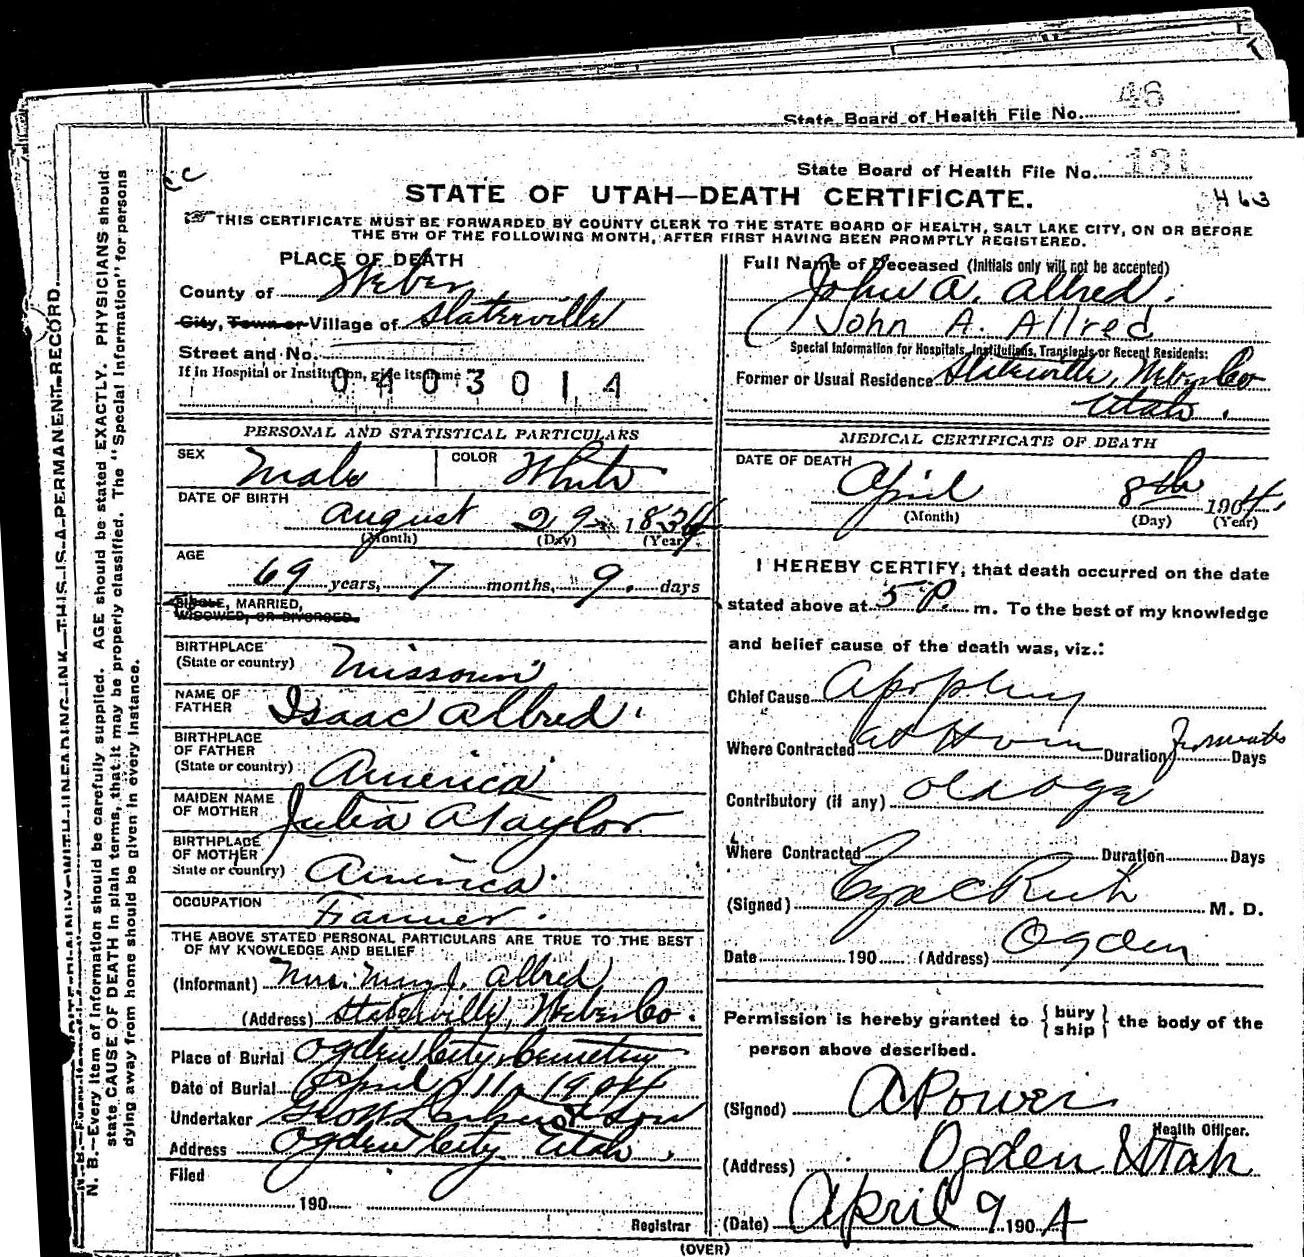 State Board of Health File No. 46
State Board of Health File No. 131
463
STATE OF UTAH—DEATH CERTIFICATE.
THIS CERTIFICATE MUST BE FORWARDED BY COUNTY CLERK TO THE STATE BOARD OF HEALTH, SALT LAKE CITY, ON OR BEFORE
THE 5TH OF THE FOLLOWING MONTH, AFTER FIRST HAVING BEEN PROMPTLY REGISTERED.
PLACE OF DEATH
County of Weber
City, Town or Village of Slaterville
Street and No.
If in Hospital or Institution, give its name
0403014
PERSONAL AND STATISTICAL PARTICULARS
SEX Male COLOR White
DATE OF BIRTH
August 29 1834
(Month) (Day) (Year)
AGE
69 years, 7 months, 9 days
SINGLE, MARRIED,
WIDOWED, OR DIVORCED.
BIRTHPLACE
(State or country) Missouri
NAME OF
FATHER Isaac Allred.
BIRTHPLACE
OF FATHER
(State or country) America
MAIDEN NAME
OF MOTHER Julia A Taylor
BIRTHPLACE
OF MOTHER
State or country) America.
OCCUPATION Farmer.
THE ABOVE STATED PERSONAL PARTICULARS ARE TRUE TO THE BEST
OF MY KNOWLEDGE AND BELIEF
(Informant) Mrs. Mary J. Allred
(Address) Slaterville, Weber Co.
Place of Burial Ogden City Cemetery
Date of Burial April 11 1904
Undertaker & Son
Address Ogden City Utah.
Filed
190
Registrar
Full Name of Deceased (Initials only will not be accepted)
John A. Allred.
John A. Allred
Special Information for Hospitals, Institutions, Transients or Recent Residents:
Former or Usual Residence Slaterville, Weber Co
Utah.
MEDICAL CERTIFICATE OF DEATH
DATE OF DEATH
April 8th 1904
(Month) (Day) (Year)
I HEREBY CERTIFY, that death occurred on the date
stated above at 5 P. m. To the best of my knowledge
and belief cause of the death was, viz.:
Chief Cause Apoplexy
Where Contracted at Home Duration Days
Contributory (if any) old age
Where Contracted Duration Days
(Signed) Rich M. D.
Date 190 (Address) Ogden
Permission is hereby granted to {bury
ship} the body of the
person above described.
(Signed) A Power
Health Officer.
(Address) Ogden Utah
(Date) April 9 1904
(OVER)
N. B.—Every item of information should be carefully supplied. AGE should be stated EXACTLY. PHYSICIANS should
state CAUSE OF DEATH in plain terms, that it may be properly classified. The "Special Information" for persons
dying away from home should be given in every instance.
THIS IS A PERMANENT RECORD.